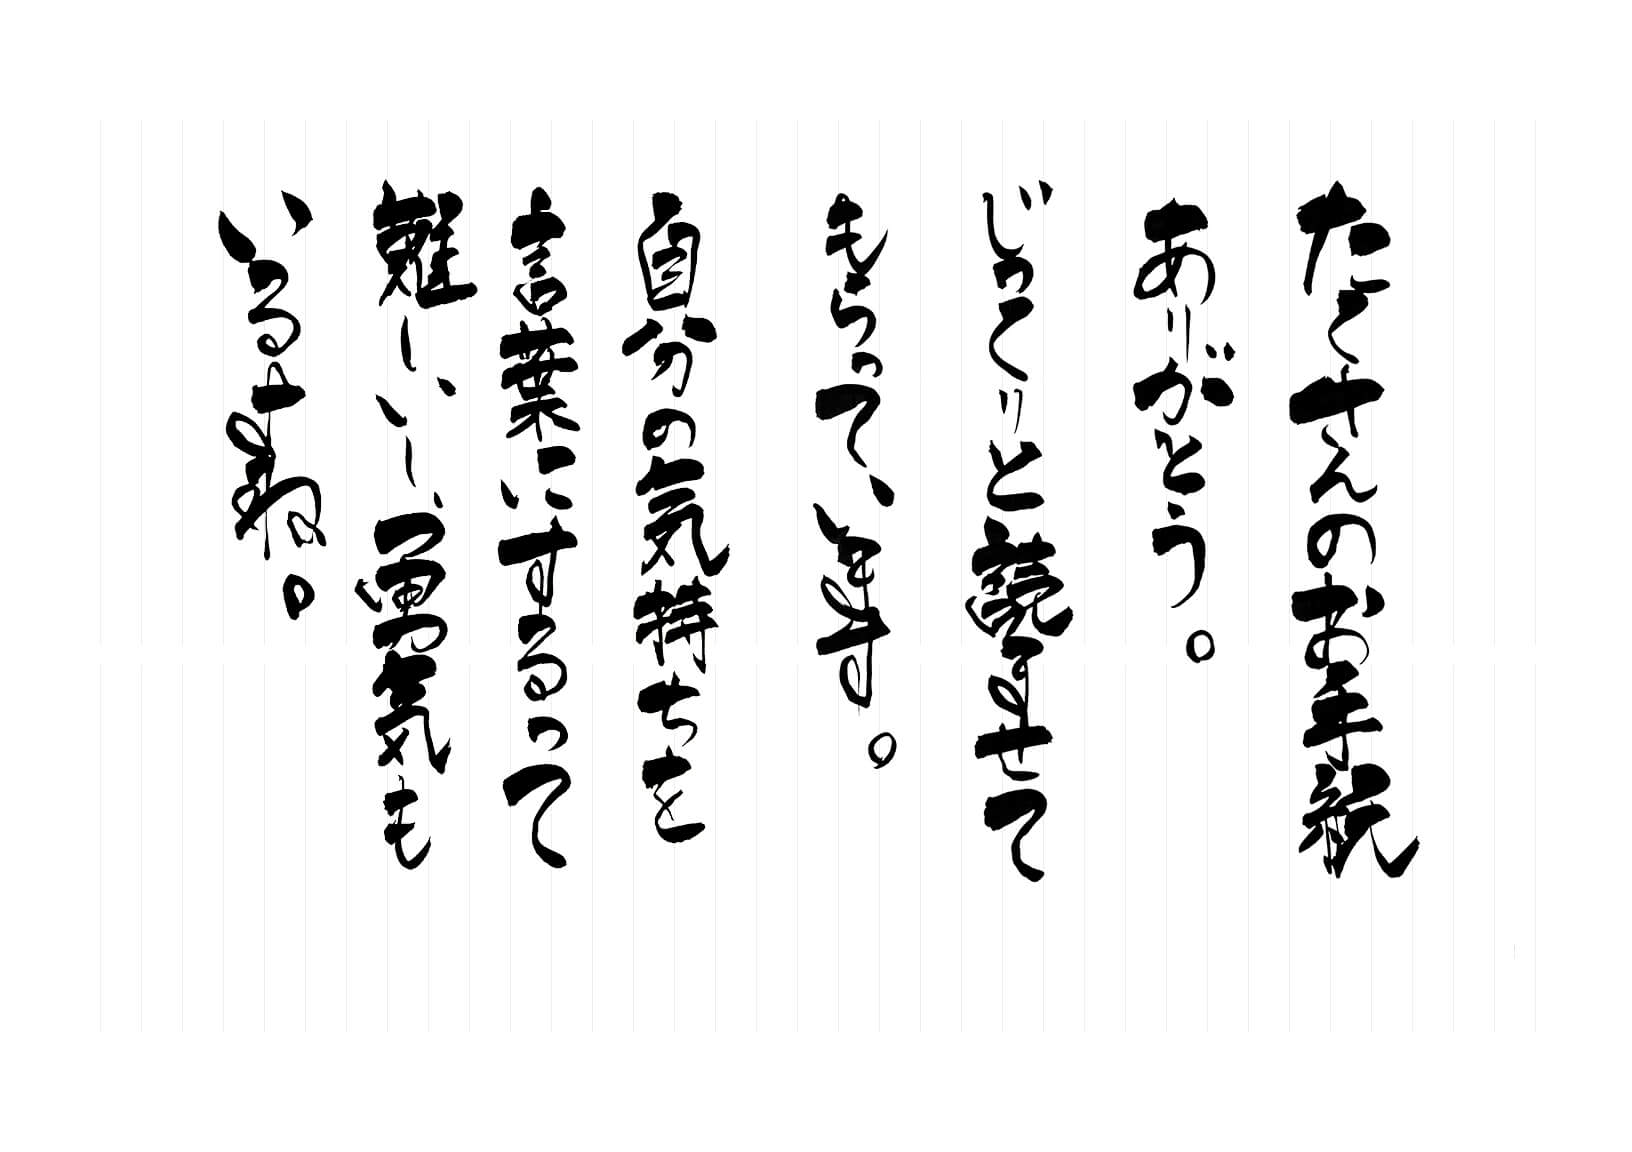 たくさんのお手紙
ありがとう。
じっくりと読ませて
もらっています。
自分の気持ちを
言葉にするって
難しいし、勇気も
いるよね。